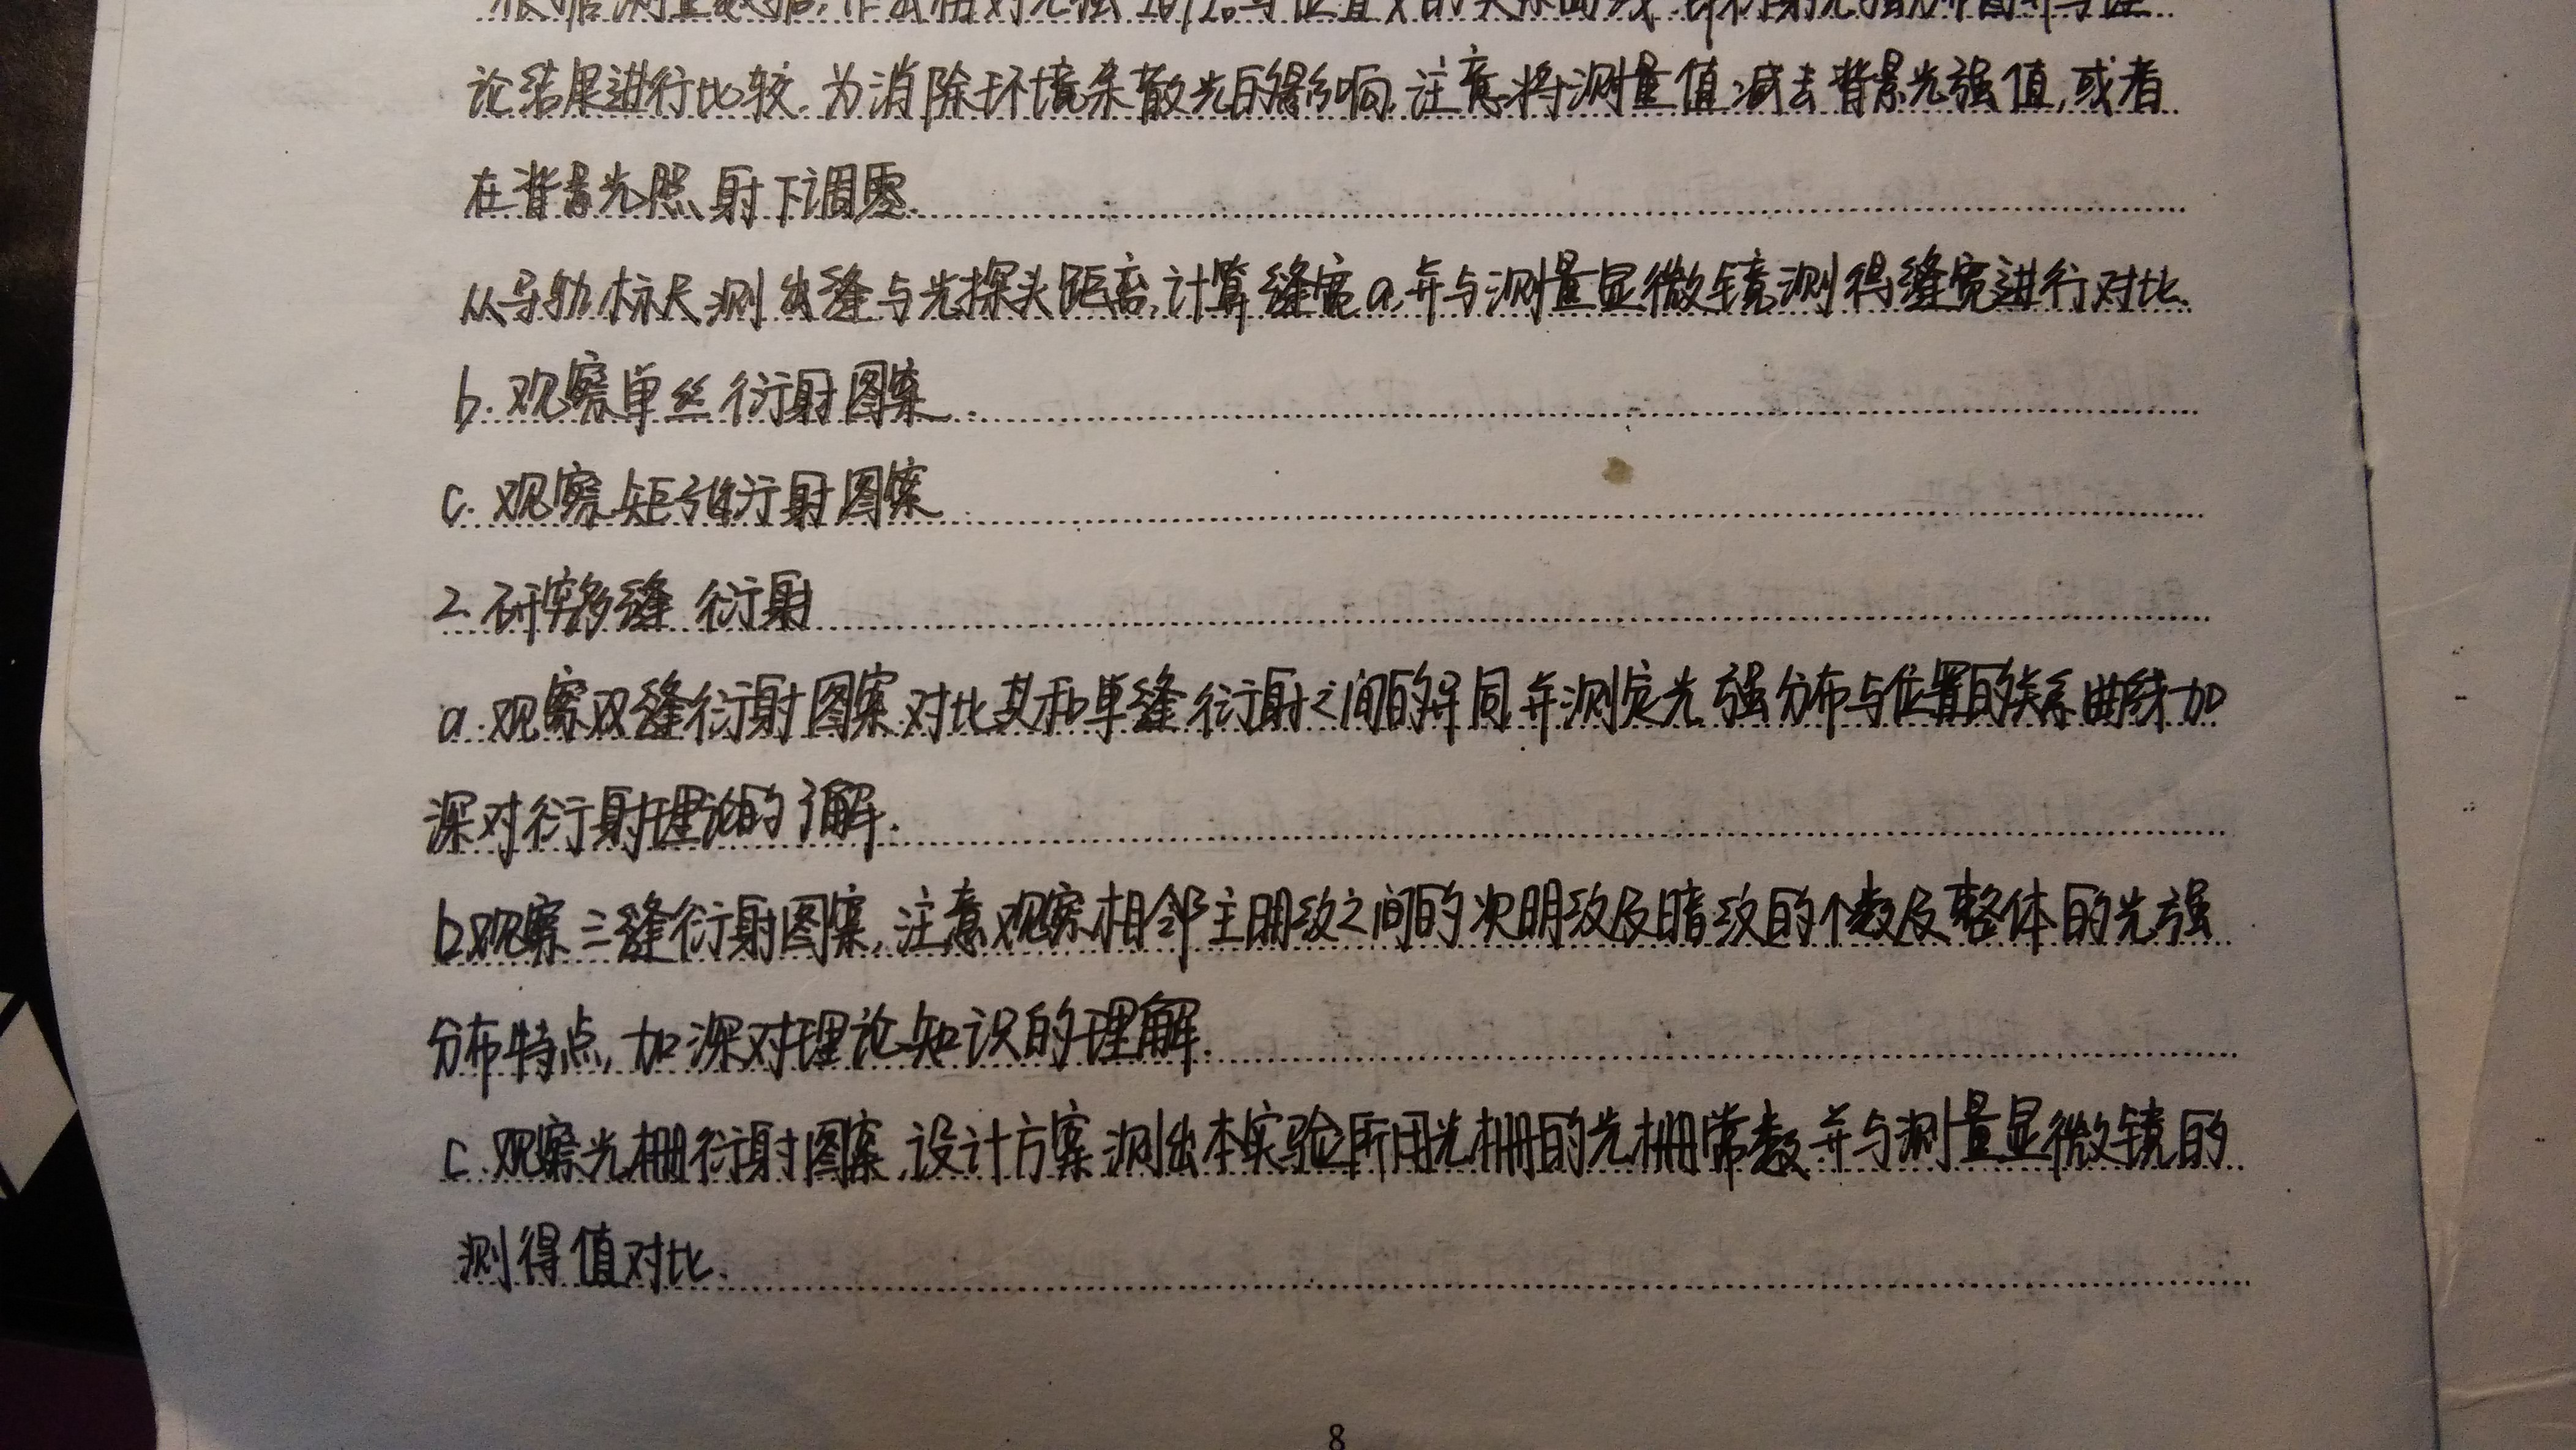 根据测量数据,作出相对光强 Iθ/I₀与位置x的关系曲线,即衍射光强分布图,并与理
论结果进行比较.为消除环境杂散光的影响,注意将测量值减去背景光强值,或者
在背景光照射下调零.
从导轨标尺测出缝与光探头距离,计算缝宽a,并与测量显微镜测得缝宽进行对比.
b.观察单丝衍射图案.
c.观察矩孔衍射图案
2.研究多缝衍射
a.观察双缝衍射图案,对比其和单缝衍射之间的异同,并测定光强分布与位置的关系曲线,加
深对衍射理论的了解.
b.观察三缝衍射图案,注意观察相邻主明纹之间的次明纹及暗纹的个数及整体的光强
分布特点,加深对理论知识的理解.
c.观察光栅衍射图案,设计方案测出本实验所用光栅的光栅常数,并与测量显微镜的
测得值对比.
8